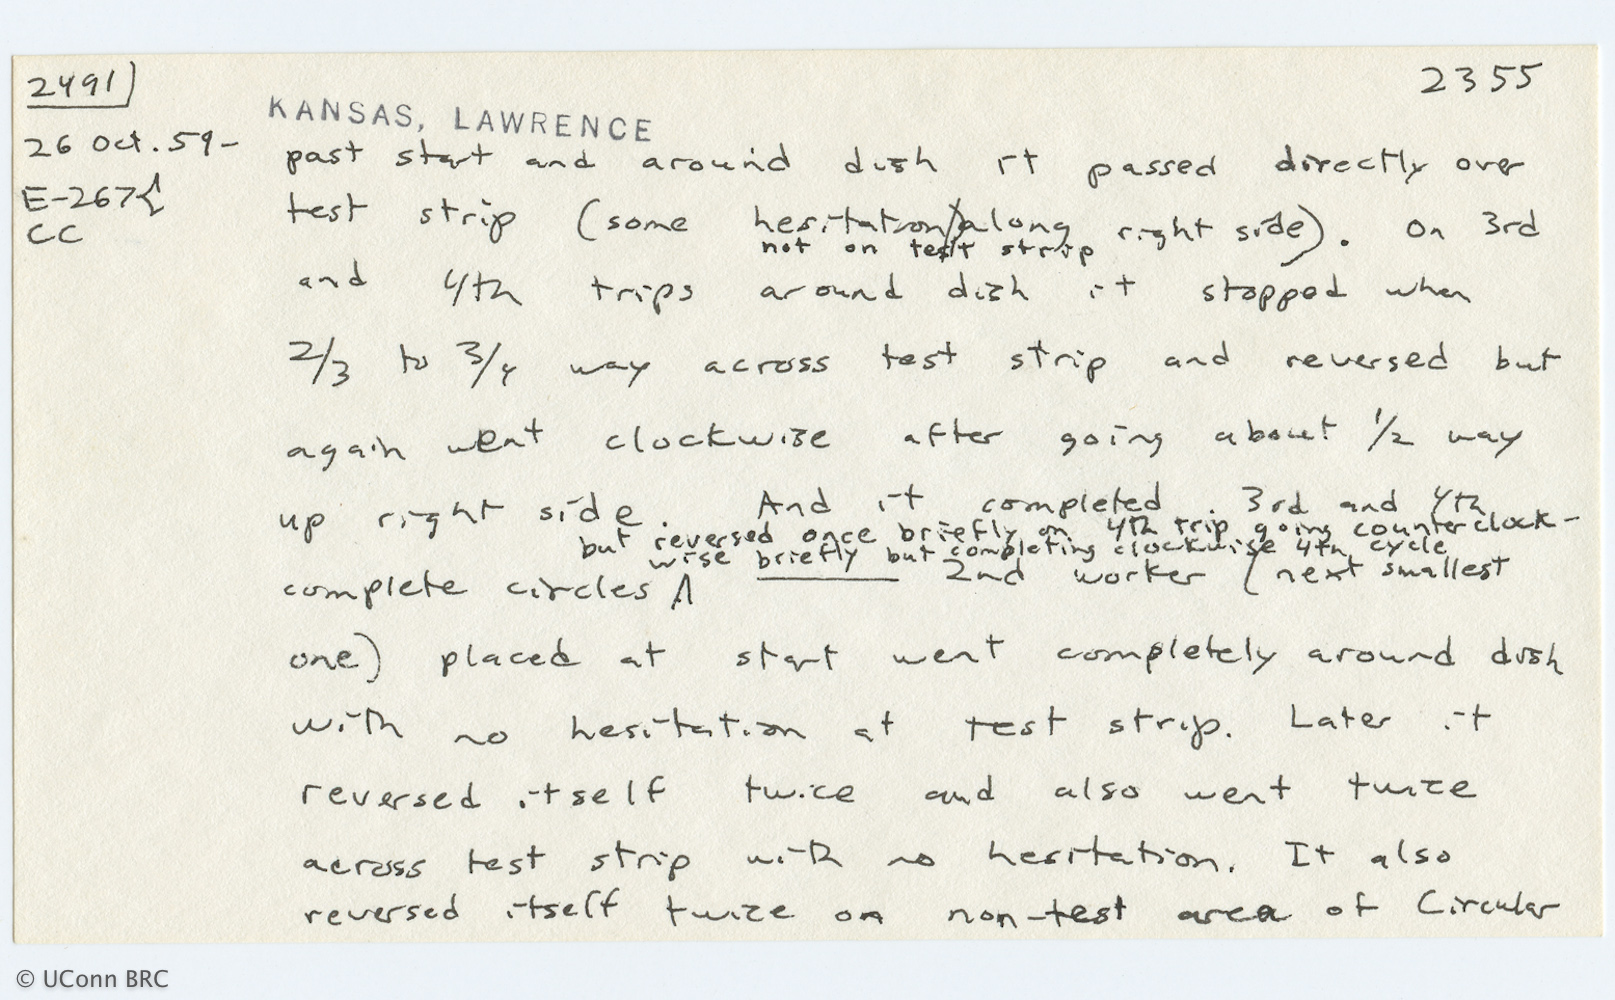 2491)
2355
KANSAS, LAWRENCE
26 Oct. 59-
E-267{
CC
past start and around dish it passed directly over
test strip (some hesitation along right side). On 3rd
not on test strip
and 4th trips around dish it stopped when
2/3 to 3/4 way across test strip and reversed but
again went clockwise after going about 1/2 way
up right side. And it completed 3rd and 4th
but reversed once briefly on 4th trip going counterclock-
wise briefly but completing clockwise 4th cycle
complete circles 2nd worker (next smallest
one) placed at start went completely around dish
with no hesitation at test strip. Later it
reversed itself twice and also went twice
across test strip with no hesitation. It also
reversed itself twice on non-test area of Circular
© UConn BRC